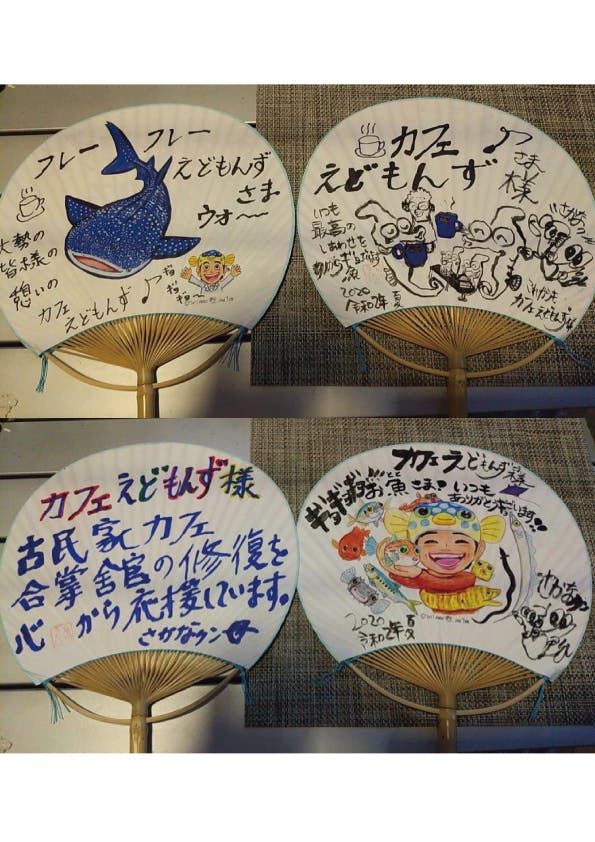 フレー フレー
えどもんず
さま
ウォ〜〜
大勢の
皆様の
憩いの
カフェ
えどもんず♪
ギョ
ギョ
ギョ〜
カフェ♪
えどもんず
さま
様
いつも
最高の
しあわせを
2020
令和2年 夏
さかなクン
カフェえどもんず様
カフェえどもんず様
古民家カフェ
合掌舎官の修復を
心から応援しています。
さかなクン
カフェえどもんず
様
ギョギョギョ
お魚さま♪
いつも
ありがとうギョざいます!!
2020
令和2年 夏
さかなクン